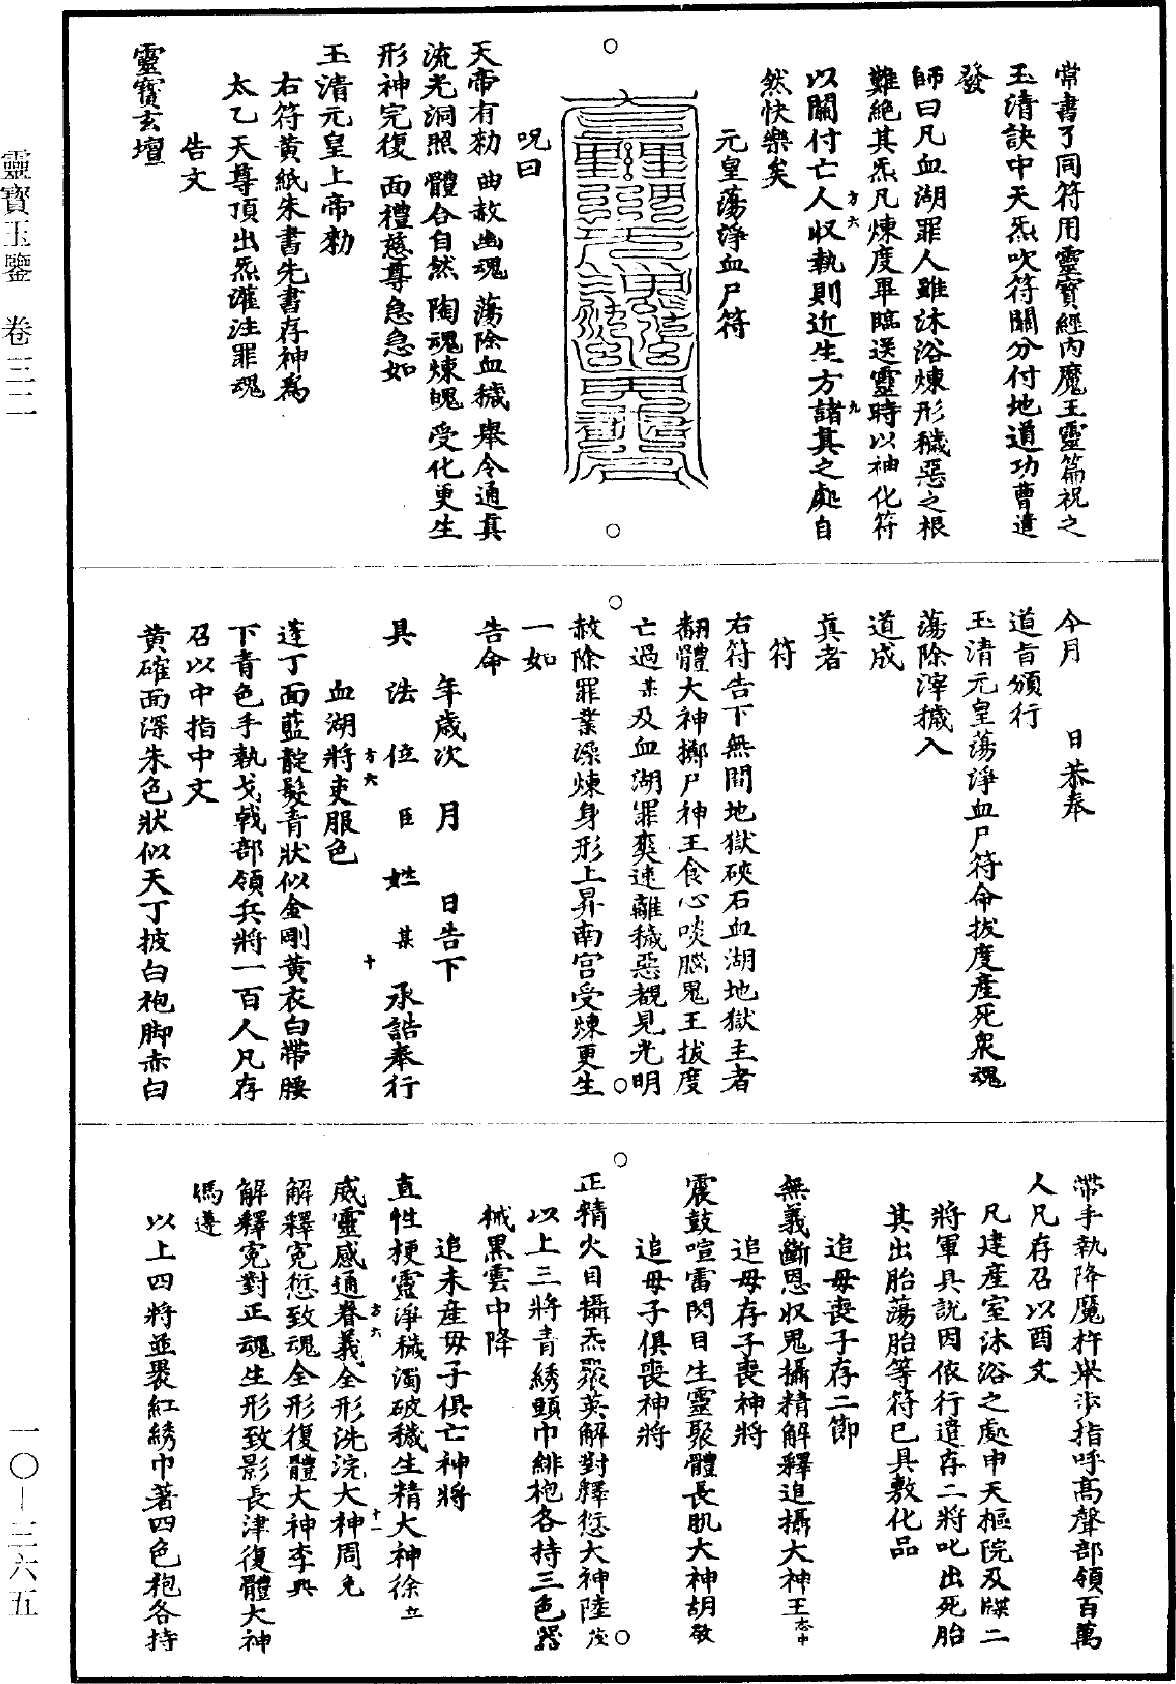 常書了同符用靈寶經內魔王靈篇祝之
玉清訣中天炁吹符關分付地道功曹遣
發
師曰凡血湖罪人雖沐浴煉形穢惡之根
難絕其炁凡煉度畢臨送靈時以袖化符
以關付亡人收執則近生方諸其之處自
然快樂矣
元皇蕩淨血尸符
呪曰
天帝有勑 曲赦幽魂 蕩除血穢 舉令通真
流光洞照 體合自然 陶魂煉魄 受化更生
形神完復 面禮慈尊急急如
玉清元皇上帝勑
右符黃紙朱書先書存神為
太乙天尊頂出炁灌注罪魂
告文
靈寶玄壇
今月 日恭奉
道旨頒行
玉清元皇蕩淨血尸符命拔度產死衆魂
蕩除滓穢入
道成
真者
符
右符告下無間地獄硤石血湖地獄主者
翻體大神擲尸神王食心啖腦鬼王拔度
亡過某及血湖罪爽速離穢惡覩見光明
赦除罪業澡煉身形上昇南宮受煉更生
一如
告命
年歲次 月 日告下
具 法 位 臣 姓 某 承誥奉行
血湖將吏服色
蓬丁面藍靛髮青狀似金剛黃衣白帶腰
下青色手執戈戟部領兵將一百人凡存
召以中指中文
黃確面深朱色狀似天丁披白袍脚赤白
帶手執降魔杵举步指呼高聲部領百萬
人凡存召以酉文
凡建產室沐浴之處申天樞院及牒二
將軍具說因依行遣存二將叱出死胎
其出胎蕩胎等符已具敷化品
追母喪子存二節
無義斷恩收鬼攝精解釋追攝大神王志中
追母存子喪神將
震鼓喧雷閃目生靈聚體長肌大神胡敬
追母子俱喪神將
正精火目攝炁聚英解對釋愆大神陸茂
以上三將青綉頭巾緋袍各持三色器
械黑雲中降
追未產母子俱亡神將
直性梗靈淨穢濁破穢生精大神徐立
威靈感通眷義全形洗浣大神周允
解釋冤愆致魂全形復體大神李興
解釋冤對正魂生形致影長津復體大神
馮遷
以上四將並裹紅綉巾著四色袍各持
靈寶玉鑒 卷三二
一〇—三六五